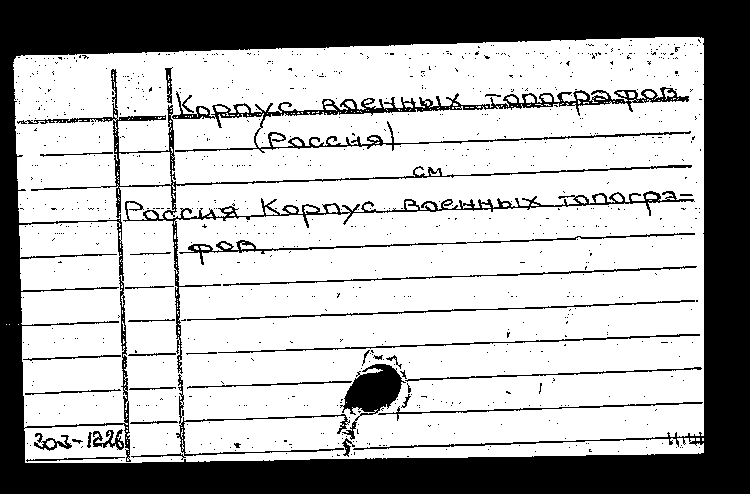 Корпус военных топографов
(Россия)
см.
Россия. Корпус военных топогра=
фов.
303-1226